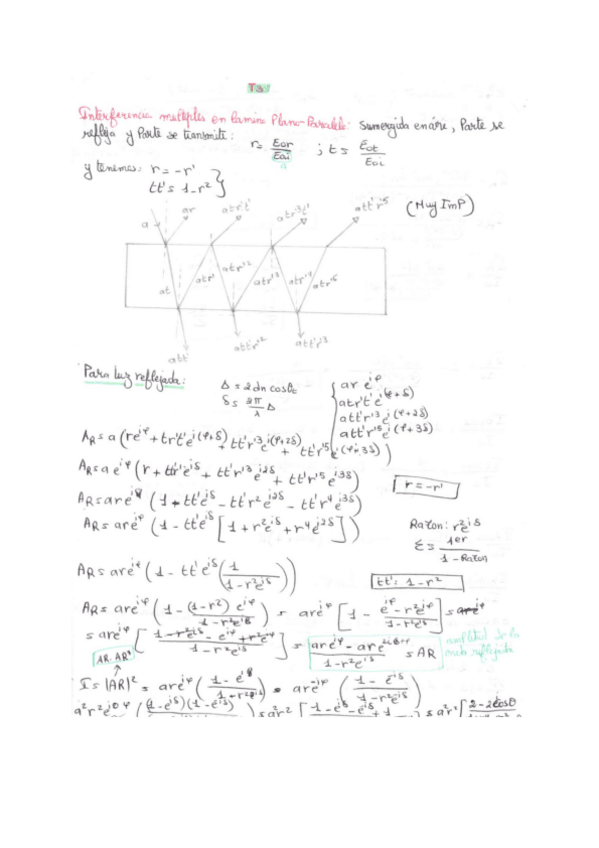 T3
Interferencia multiples en Lamina Plano-Paralela: Sumergida en aire, Parte se
refleja y Parte se transmite: r = Eor/Eoi ; t = Eot/Eoi
y tenemos: r = -r'
tt' = 1-r²
(Muy Imp)
a ar atr't' atr'³t' att'r'⁵
at atr' atr'² atr'³ atr'⁴ atr'⁵
att' att'r'² att'r'³
Para luz reflejada: Δ = 2dn cosθt
δ = 2π/λ Δ
ar e^iφ
atr't'e^i(φ+δ)
att'r'³e^i(φ+2δ)
att'r'⁵e^i(φ+3δ)
AR = a (re^iφ + tr't'e^i(φ+δ) + tt'r'³e^i(φ+2δ) + tt'r'⁵e^i(φ+3δ))
AR = a e^iφ (r + tt'r'e^iδ + tt'r'³e^i2δ + tt'r'⁵e^i3δ)
r = -r'
AR = are^iφ (1 - tt'e^iδ - tt'r²e^i2δ - tt'r⁴e^i3δ)
AR = are^iφ (1 - tt'e^iδ [1 + r²e^iδ + r⁴e^i2δ])
Razon: r²e^iδ
Σ = 1er/1-Razon
AR = are^iφ (1 - tt'e^iδ (1/1-r²e^iδ))
tt' = 1-r²
AR = are^iφ (1 - (1-r²)e^iφ/1-r²e^iδ) = are^iφ [1 - e^iφ-r²e^iφ/1-r²e^iδ] =
= are^iφ [1-r²e^iδ-e^iφ+r²e^iφ/1-r²e^iδ] = = AR
amplitud de la
onda reflejada
AR·AR*
I = |AR|² = are^iφ (1-e^iδ/1-r²e^iδ) = are^-iφ (1-e^iδ/1-r²e^-iδ)